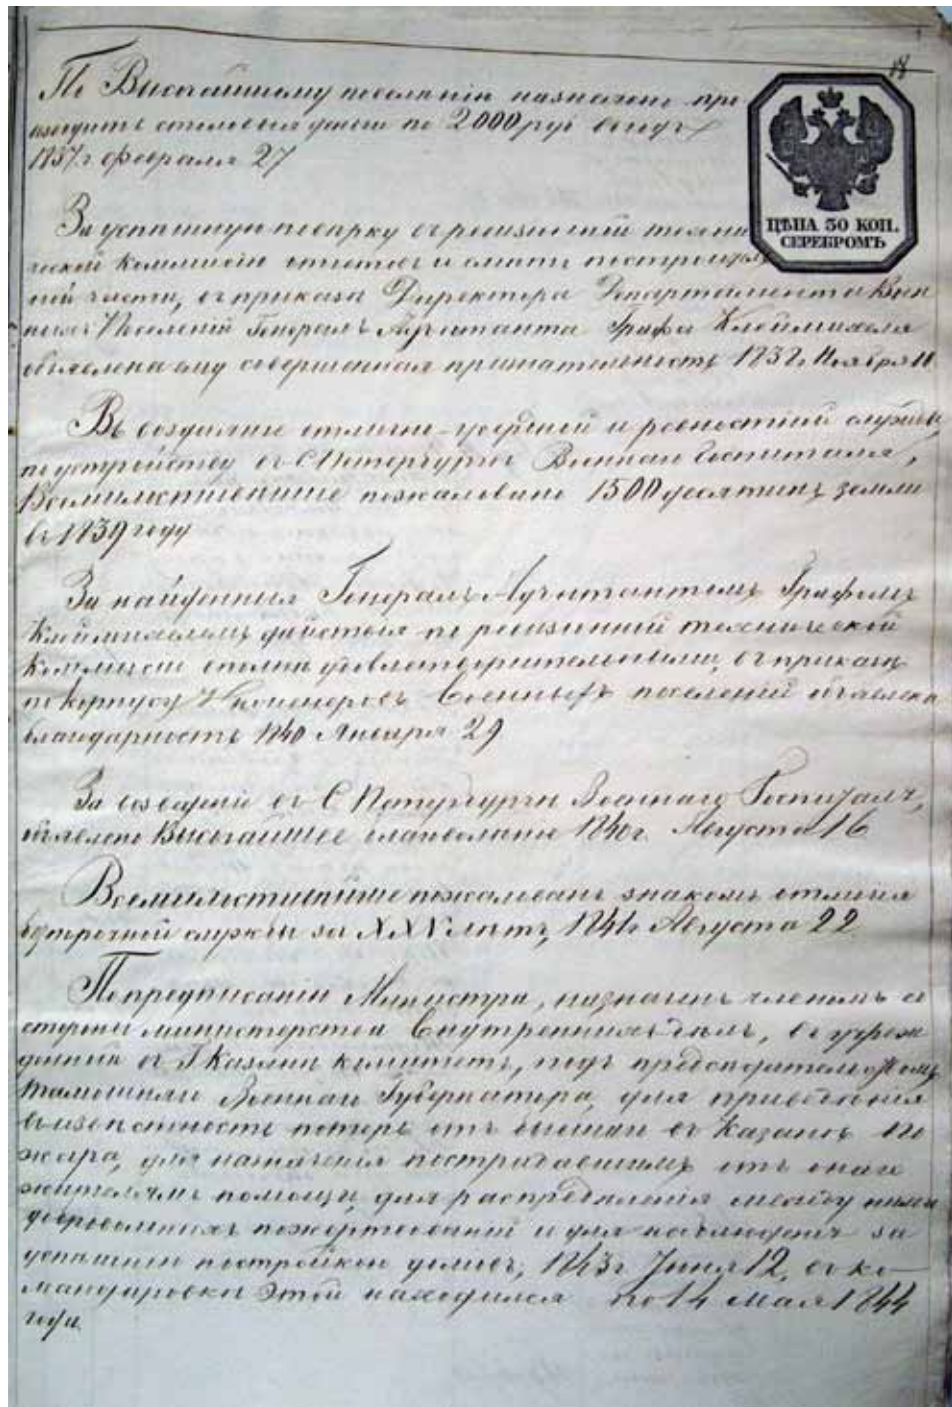 По Высочайшему повелѣнію назначено про
изводить столовыя деньги по 2000 руб въ годъ
1837 г февраля 27
ЦѢНА 30 КОП.
СЕРЕБРОМЪ
За успѣшную повѣрку въ ревизіонной техни
ческой Коммисіи отчетовъ и смѣтъ по строитель
ной части, въ приказѣ Директора Департамента Воен
ныхъ Поселеній Генералъ Адъютанта Графа Клейнмихеля
объявлена ему совершенная признательность 1838 г Ноября
Въ воздаяніе отлично-усердной и ревностной службы,
по устройству въ С Петербургѣ Военнаго Госпиталя,
Всемилостивѣйше пожаловано 1500 десятинъ земли
въ 1839 году
За найденныя Генералъ Адъютантомъ Графомъ
Клейнмихелемъ дѣйствія по ревизіонной технической
Коммисіи вполнѣ удовлетворительными, въ приказѣ
по корпусу Инженеровъ Военныхъ поселеній объявлена
благодарность 1840 Января 29
За возведеніе въ С Петербургѣ Военнаго Госпиталя,
объявлено Высочайшее благоволеніе 1840 г. Августа 16
Всемилостивѣйше пожалованъ знакомъ отличія
безпорочной службы за XXV лѣтъ, 1841 г Августа 22
По предписанію Министра, назначенъ членомъ со
стороны министерства Внутреннихъ дѣлъ, въ учреж
денный въ Г Казани комитетъ, подъ предсѣдательствомъ
тамошняго Военнаго Губернатора, для приведенія
въ извѣстность потерь отъ бывшаго въ Казани по
жара, для назначенія пострадавшимъ отъ онаго
жителямъ помощи, для распредѣленія между ними
добровольныхъ пожертвованій и для наблюденія за
успѣшною постройкою домовъ, 1843 г Іюня 12, въ ко-
мандировкѣ этой находился по 14 Мая 1844
года